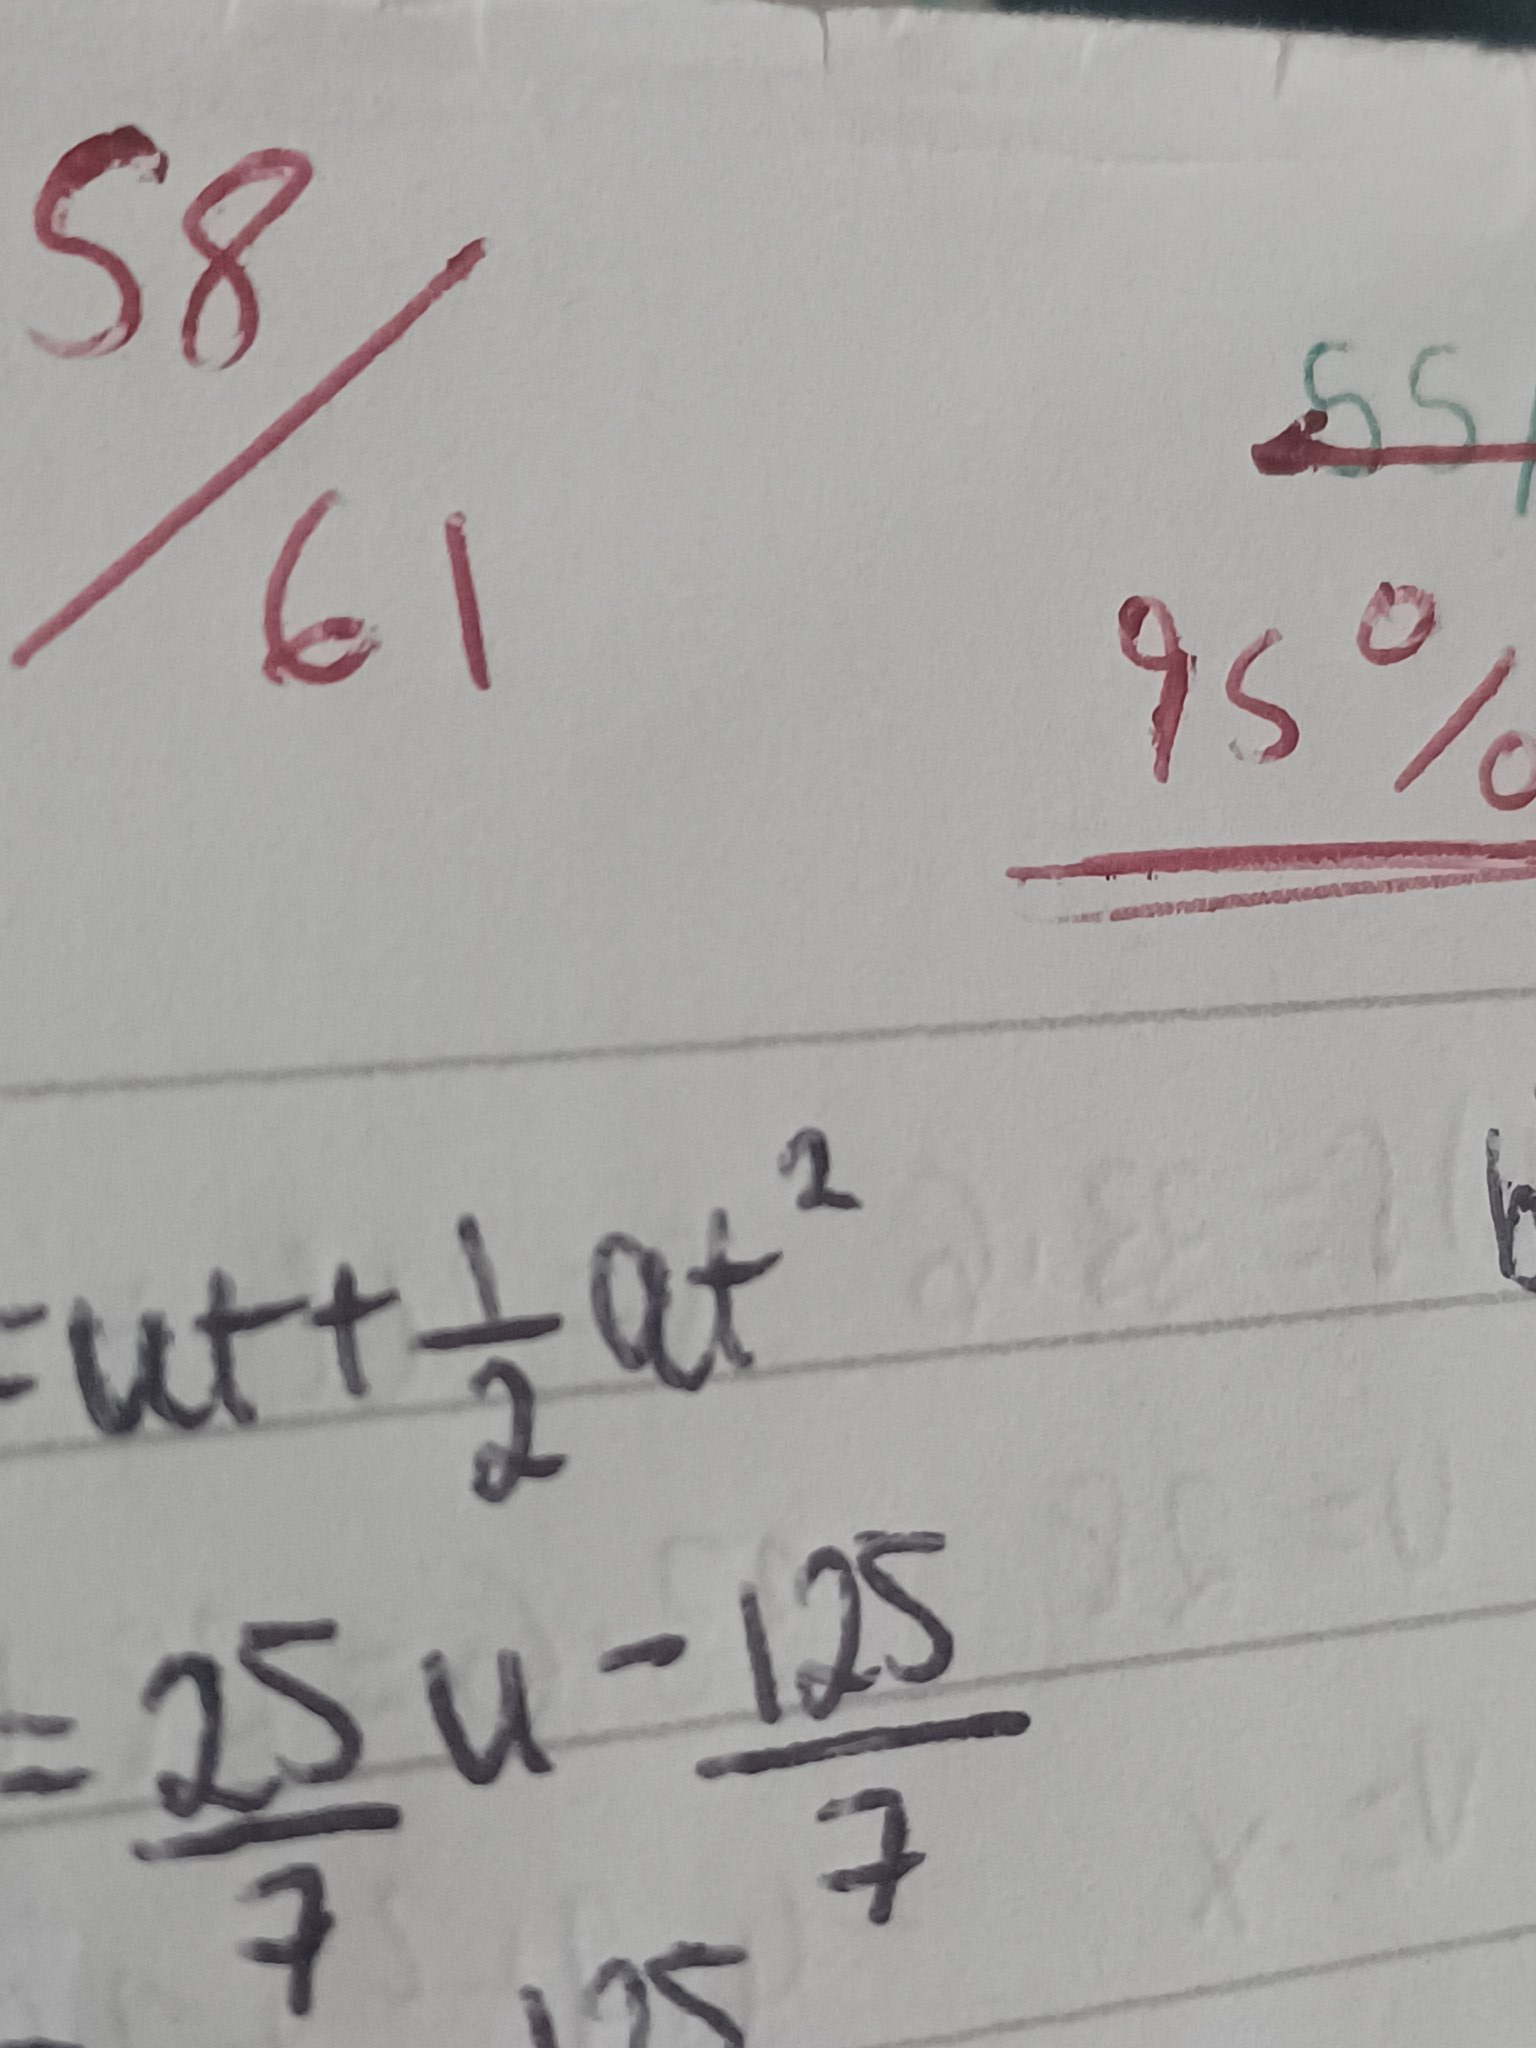 58/61
55
95%
= ut + 1/2 at²
= 25/7 u - 125/7
125